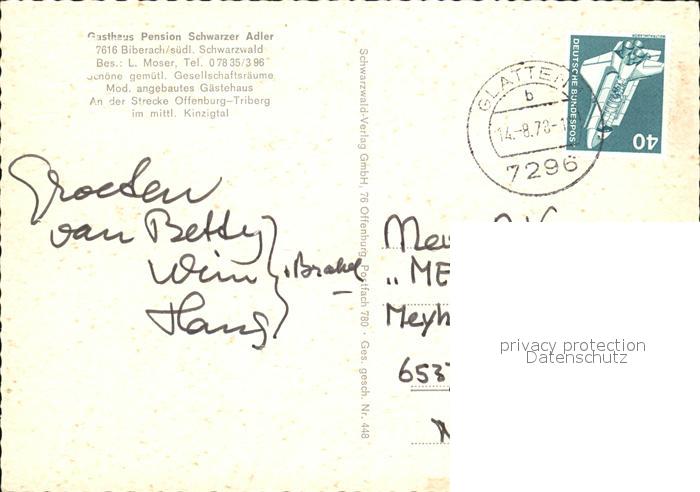 Gasthaus Pension Schwarzer Adler
7616 Biberach/südl. Schwarzwald
Bes.: L. Moser, Tel. 0 78 35/3 96
Schöne gemütl. Gesellschaftsräume
Mod. angebautes Gästehaus
An der Strecke Offenburg-Triberg
im mittl. Kinzigtal
Schwarzwald-Verlag GmbH, 76 Offenburg, Postfach 780 · Ges. gesch. Nr. 448
GLATTEN
b
14.-8.78-1
7296
DEUTSCHE BUNDESPOST
40
Groeten
van Betty
Wim
Hans
Brakel
Mev
„ME
Meyh
653
privacy protection
Datenschutz